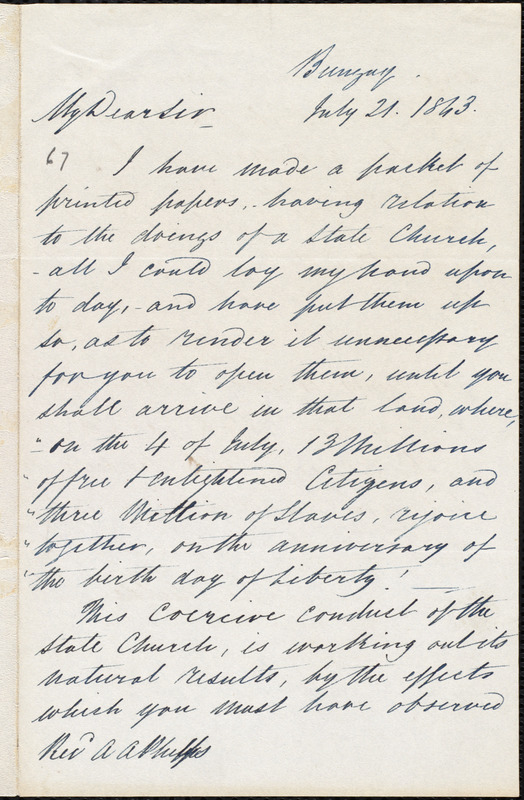 Bungay.
July 21. 1843.
My Dear Sir
67 I have made a packet of
printed papers, - having relation
to the doings of a State Church,
- all I could lay my hand upon
to day, - and have put them up
so, as to render it unnecessary
for you to open them, until you
shall arrive in that land, where,
"- on the 4 of July, 13 Millions
"of free & enlightened Citizens, and
"three Million of Slaves, rejoice
"together, on the anniversary of
"the birth day of Liberty! —
This Coercive conduct of the
State Church, is working out its
natural results, by the effects
which you must have observed
Revd A A Phelps